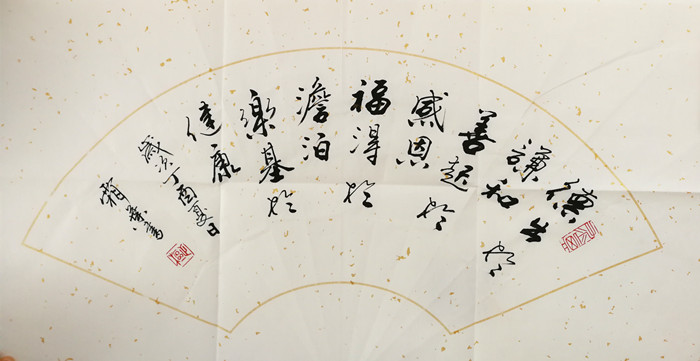 德生於
謙和
善起於
感恩
福得於
澹泊
樂基於
健康
歲次丁酉夏日
霜葉書